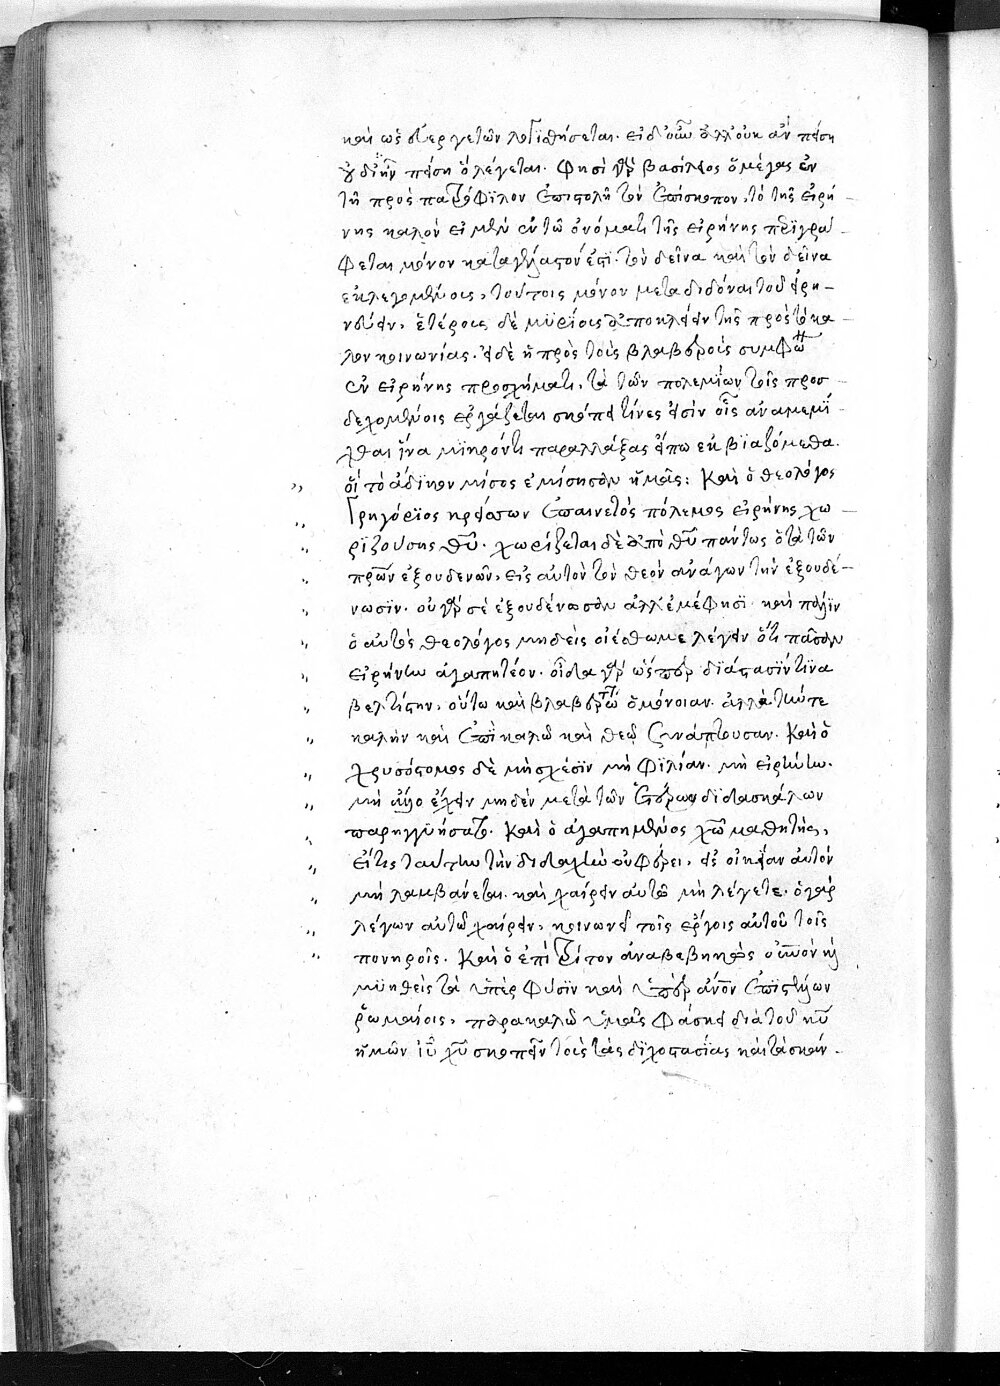 καὶ ὡς εὐεργετῶν λογϊσθήσεται. εἰ δ' οὖν ἀλλ' οὐκ ἂν πείση
οὐδ' ἢν πείση ὁ λέγεται. Φησὶ γὰρ βασίλειος ὁ μέγας ἐν
τῆ πρὸς πατρόφϊλον ἐπιστολῆ τὸν ἐπίσκοπον, τὸ τῆς εἰρή-
νης καλὸν εἰ μὲν ἐν τῶ ὀνόματι τῆς εἰρήνης περϊγρά-
φεται μόνον καταγέλαστόν ἐστϊ. τὸν δεῖνα καὶ τὸν δεῖνα
ἐκλεγομένοις, τούτοις μόνον μεταδιδόναι τοῦ εἰρη-
νεύειν, ἑτέροις δὲ μϋρίοις ἀποκλείειν τῆς πρὸς τὸ κα-
λὸν κοινωνίας. εἰ δὲ ἡ πρὸς τοὺς βλαβεροὺς συμφων
ἐν εἰρήνης προσχήματι, τὰ τῶν πολεμΐων τοῖς προσ-
δεχομένοις ἐργάζεται σκόπει τίνες εἰσὶν οἷς ἀναμεμΐ-
χθαι ἵνα μϊκρόν τι παραλλάξας εἴπω ἐκβϊαζόμεθα.
οἳ τὸ ἄδϊκον μίσος ἐμίσησαν ἡμᾶς: Καὶ ὁ θεολόγος
Γρηγόρϊος κρείσσων ἐπαινετὸς πόλεμος εἰρήνης χω-
ρϊζούσης θῦ. χωρίζεται δὲ ἀπὸ θῦ πάντως ὁ τὰ τῶν
πρων ἐξουδενῶν, εἰς αὐτὸν τὸν θεὸν ἀνάγων τὴν ἐξουδέ-
νωσϊν. οὐ γὰρ σὲ ἐξουδένωσαν ἀλλ' ἐμέ φησϊ. καὶ πάλϊν
ὁ αὐτὸς θεολόγος μηδεὶς οἰέσθω με λέγειν ὅτι πᾶσαν
εἰρήνην ἀγαπητέον. οἶδα γὰρ ὥσπερ διάστασϊν τϊνὰ
βελτίστην, οὕτω καὶ βλαβερωτ ὁμόνοιαν. ἀλλὰ τήν τε
καλὴν καὶ ἐπὶ καλῶ καὶ θεῶ συνάπτουσαν. Καὶ ὁ
χρυσόστομος δὲ μὴ σχέσϊν μὴ φϊλίαν. μὴ εἰρήνην.
μὴ ἄλλο ἔχειν μηδὲν μετὰ τῶν ἑτέρων διδασκάλων
παρηγγϋήσατο. Καὶ ὁ ἀγαπημένος χῶ μαθητὴς,
εἴ τις ταύτην τὴν διδαχὴν οὐ φέρει, εἰς οἰκίαν αὐτὸν
μὴ λαμβάνεται. καὶ χαίρειν αὐτῶ μὴ λέγετε. ὁ γὰρ
λέγων αὐτῶ χαίρειν, κοινωνεῖ τοῖς ἔργοις αὐτοῦ τοῖς
πονηροῖς. Καὶ ὁ ἐπὶ τρίτον ἀναβεβηκὼς οὐνὸν καὶ
μϋηθεὶς τὰ ὑπὲρ φύσϊν καὶ ὑπὲρ ἄνον ἐπϊστέλλων
ῥωμαίοις, παρακαλῶ ὑμᾶς φάσκει διὰ τοῦ κῦ
ἡμῶν ἰῦ χῦ σκοπεῖν τοὺς τὰς δϊχοστασΐας καὶ τὰ σκάν-